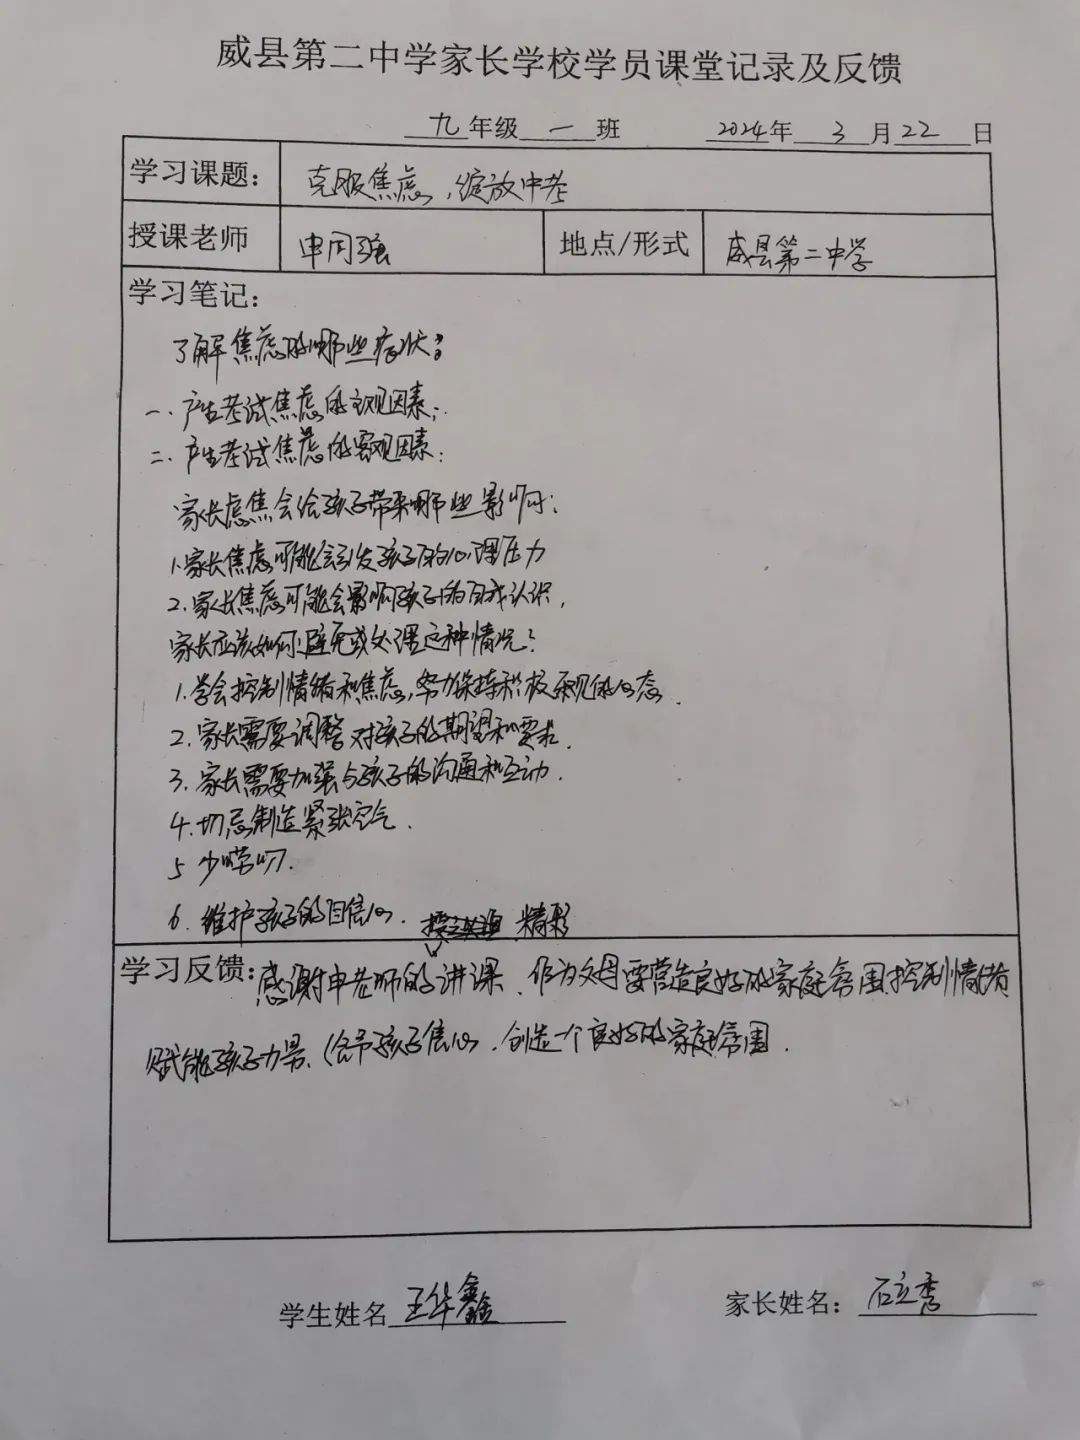 威县第二中学家长学校学员课堂记录及反馈
九年级一班 2024年3月22日
学习课题： 克服焦虑，绽放中考
授课老师 申同强 地点/形式 威县第二中学
学习笔记：
了解焦虑的哪些症状：
一、产生考试焦虑的主观因素；
二、产生考试焦虑的客观因素：
家长虑焦会给孩子带来哪些影响：
1.家长焦虑可能会引发孩子的心理压力
2.家长焦虑可能会影响孩子的自我认识，
家长应该如何避免或处理这种情况？
1.学会控制情绪和焦虑，努力保持积极乐观的心态.
2.家长需要调整对孩子的期望和要求.
3.家长需要加强与孩子的沟通和互动.
4.切忌制造紧张空气.
5 少唠叨.
6.维护孩子的自信心.
精彩
学习反馈：感谢申老师的讲课、作为父母要营造良好的家庭氛围控制情绪
赋能孩子力量、给予孩子信心、创造一个良好的家庭氛围.
学生姓名 王华鑫 家长姓名：石立秀